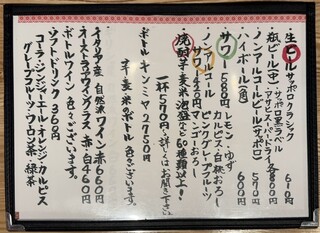 ・生ビール サッポロクラシック 610円
・瓶ビール(中)・サッポロ黒ラベル
・アサヒスーパードライ 各800円
・ノンアルコールビール(サッポロ) 570円
・ハイボール(角) 600円
・サワー 580円 レモン・ゆず
カルピス・白桃おろし
ピンクグレープフルーツ
・ノンアルコール
サワー 420円
・焼酎 芋麦米泡盛など60種類以上!
一杯570円〜詳しくはお聞き下さい
ボトル キンミヤ 2750円
芋麦米のボトル 色々ございます。
イタリア産 自然派ワイン 赤660円
オーストラリア産 グラス 赤白460円
ボトルワイン 色々ございます。
ソフトドリンク 360円
コーラ・ジンジャーエール・オレンジ・カルピス
グレープフルーツ・ウーロン茶・緑茶